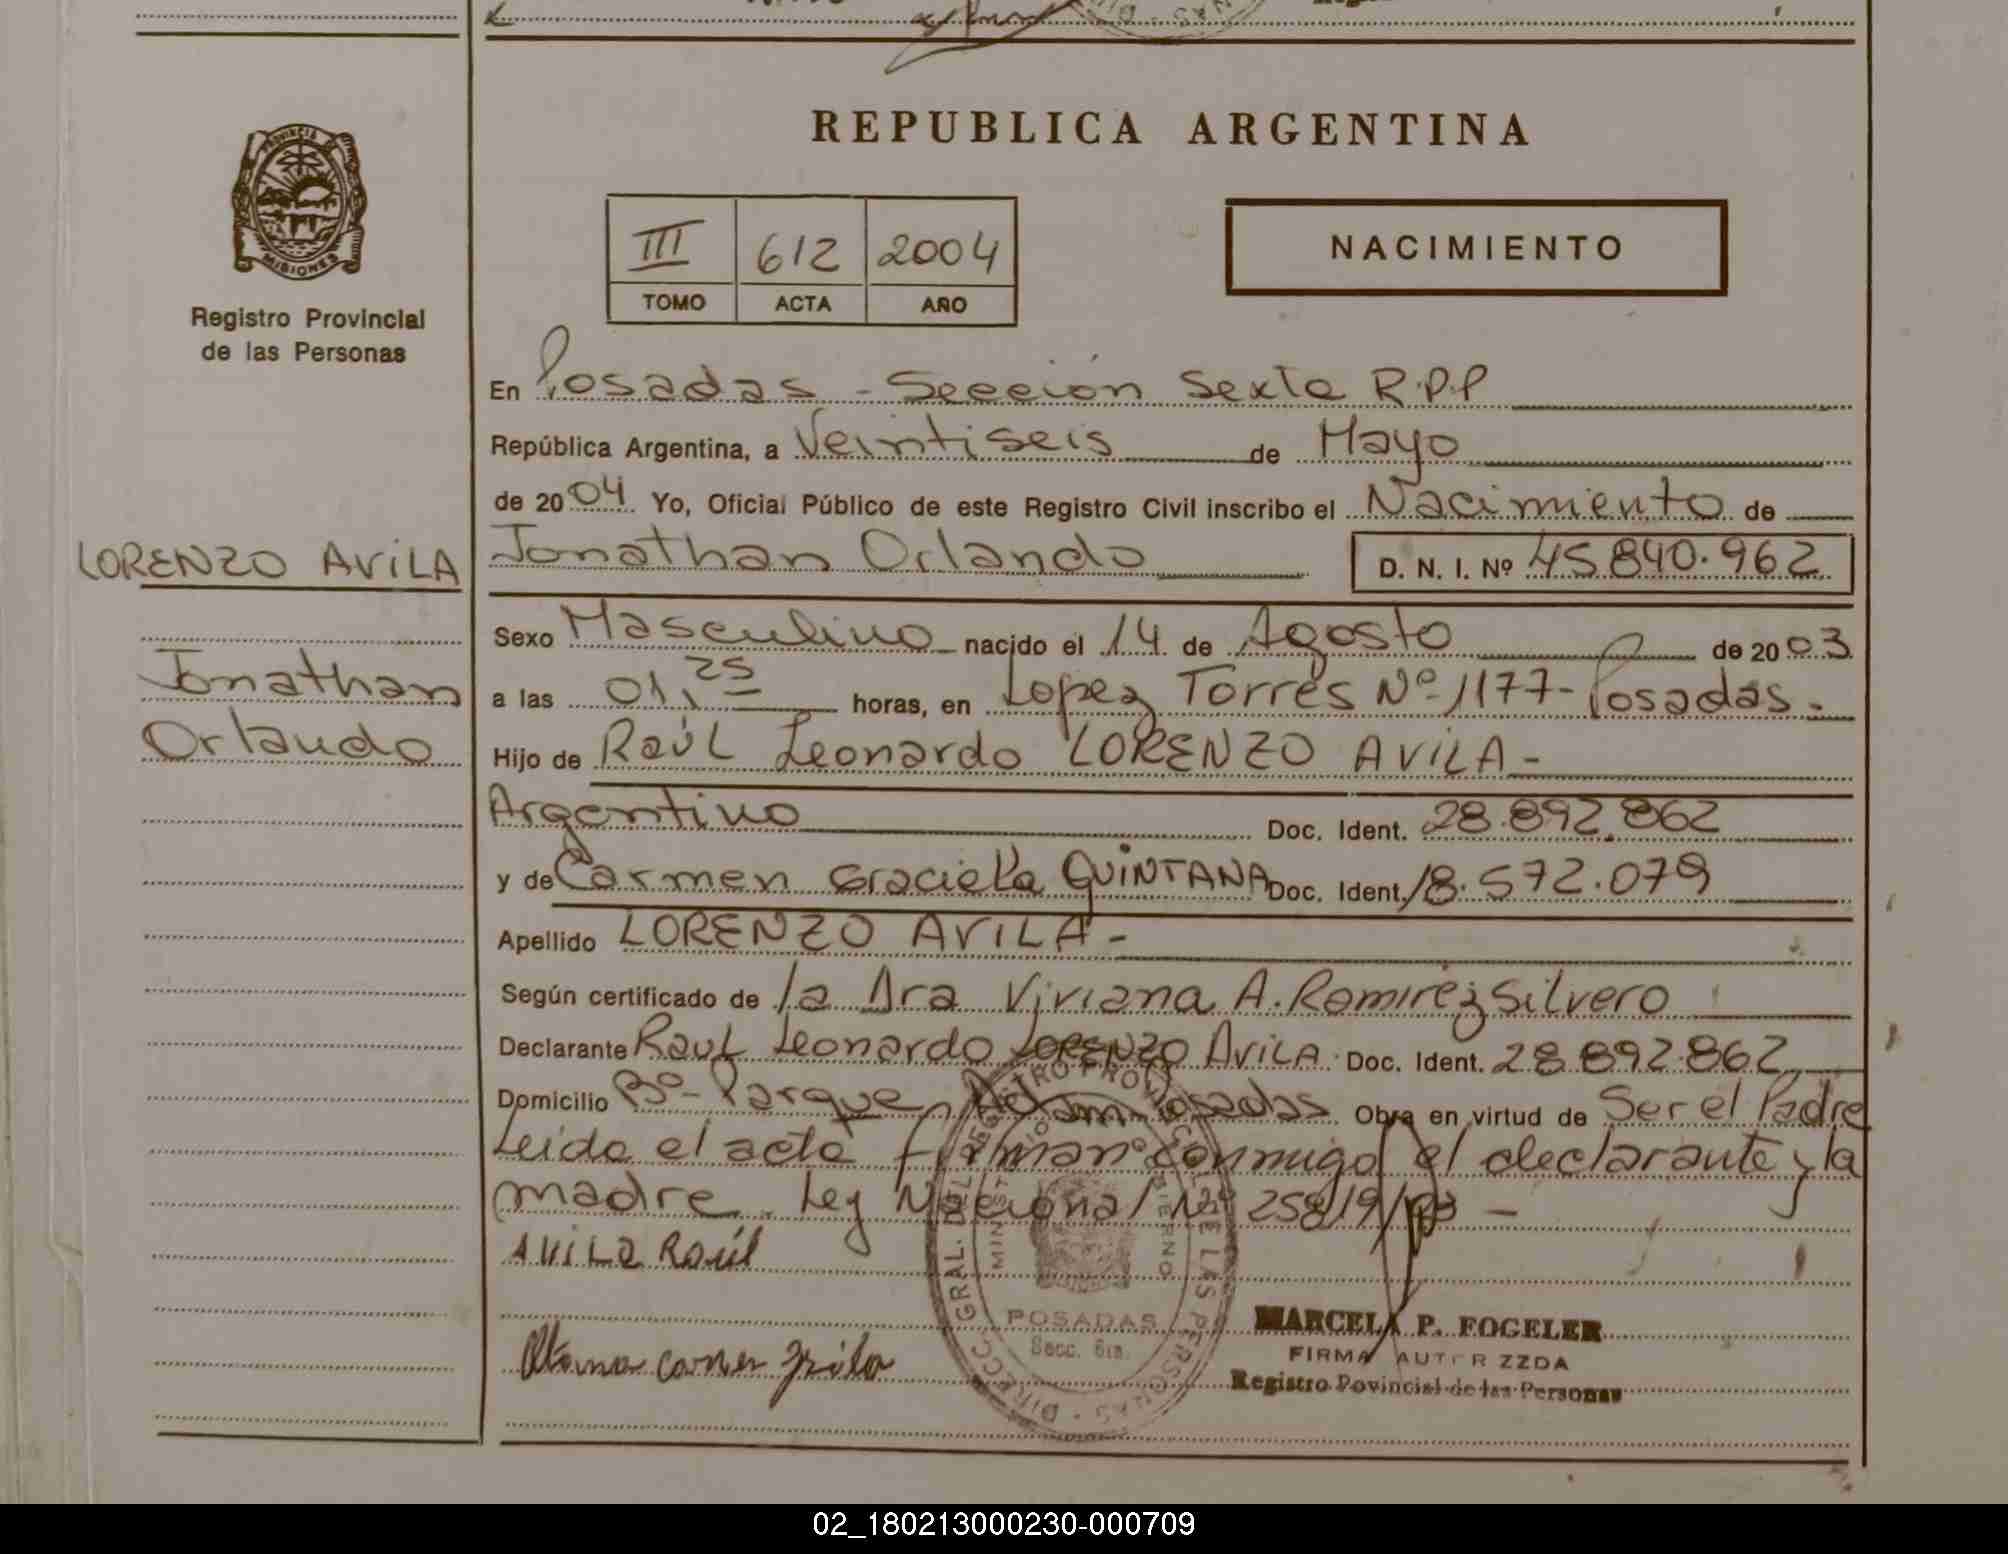 REPUBLICA ARGENTINA
PROVINCIA DE
MISIONES
Registro Provincial
de las Personas
III 612 2004
TOMO ACTA AÑO
NACIMIENTO
En Posadas - Sección Sexta R.P.P
República Argentina, a Veintiseis de Mayo
de 2004 Yo, Oficial Público de este Registro Civil inscribo el Nacimiento de
LORENZO AVILA
Jonathan Orlando D. N. I. Nº 45.840.962
Sexo Masculino nacido el 14 de Agosto de 2003
Jonathan
Orlando
a las 01,25 horas, en Lopez Torres Nº 1177- Posadas.
Hijo de Raúl Leonardo LORENZO AVILA -
Argentino Doc. Ident. 28.892.862
y de Carmen Graciela QUINTANA Doc. Ident. 18.572.079
Apellido LORENZO AVILA -
Según certificado de la Dra Viviana A. Ramirez Silvero
Declarante Raul Leonardo LORENZO AVILA. Doc. Ident. 28.892.862
Domicilio Bº- Parque Adam Posadas Obra en virtud de Ser el Padre
Leida el acta firman conmigo el declarante y la
madre. Ley Nacional Nº 25819/03 -
AVILA Raúl
DIRECC. GRAL. DEL REGISTRO PROVINCIAL DE LAS PERSONAS
MINISTERIO GOBIERNO
POSADAS
Secc. 6ta.
MARCELA P. FOGELER
FIRMA AUTORIZZDA
Registro Povincial de las Personas
02_180213000230-000709